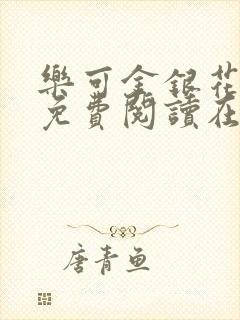 樂可金銀花
免費閱讀在
唐青鱼